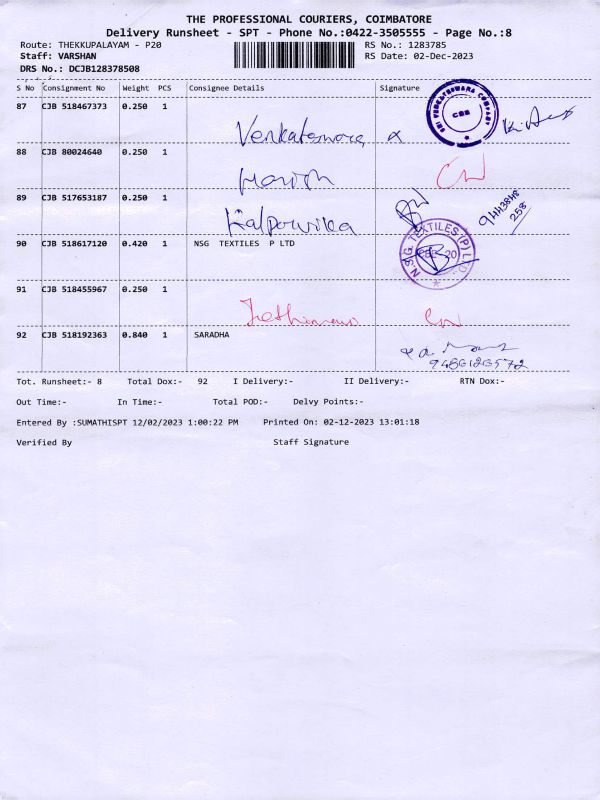 THE PROFESSIONAL COURIERS, COIMBATORE
Delivery Runsheet - SPT - Phone No.:0422-3505555 - Page No.:8
Route: THEKKUPALAYAM - P20 RS No.: 1283785
Staff: VARSHAN RS Date: 02-Dec-2023
DRS No.: DCJB128378508
S No Consignment No Weight PCS Consignee Details Signature
87 CJB 518467373 0.250 1
SRI VENKATESWARA COMPANY CBE
Venkateswara
88 CJB 80024640 0.250 1
Harish
89 CJB 517653187 0.250 1
258
90 CJB 518617120 0.420 1 NSG TEXTILES P LTD
N.S.G. TEXTILES (P) LTD
91 CJB 518455967 0.250 1
92 CJB 518192363 0.840 1 SARADHA
Tot. Runsheet:- 8 Total Dox:- 92 I Delivery:- II Delivery:- RTN Dox:-
Out Time:- In Time:- Total POD:- Delvy Points:-
Entered By :SUMATHISPT 12/02/2023 1:00:22 PM Printed On: 02-12-2023 13:01:18
Verified By Staff Signature